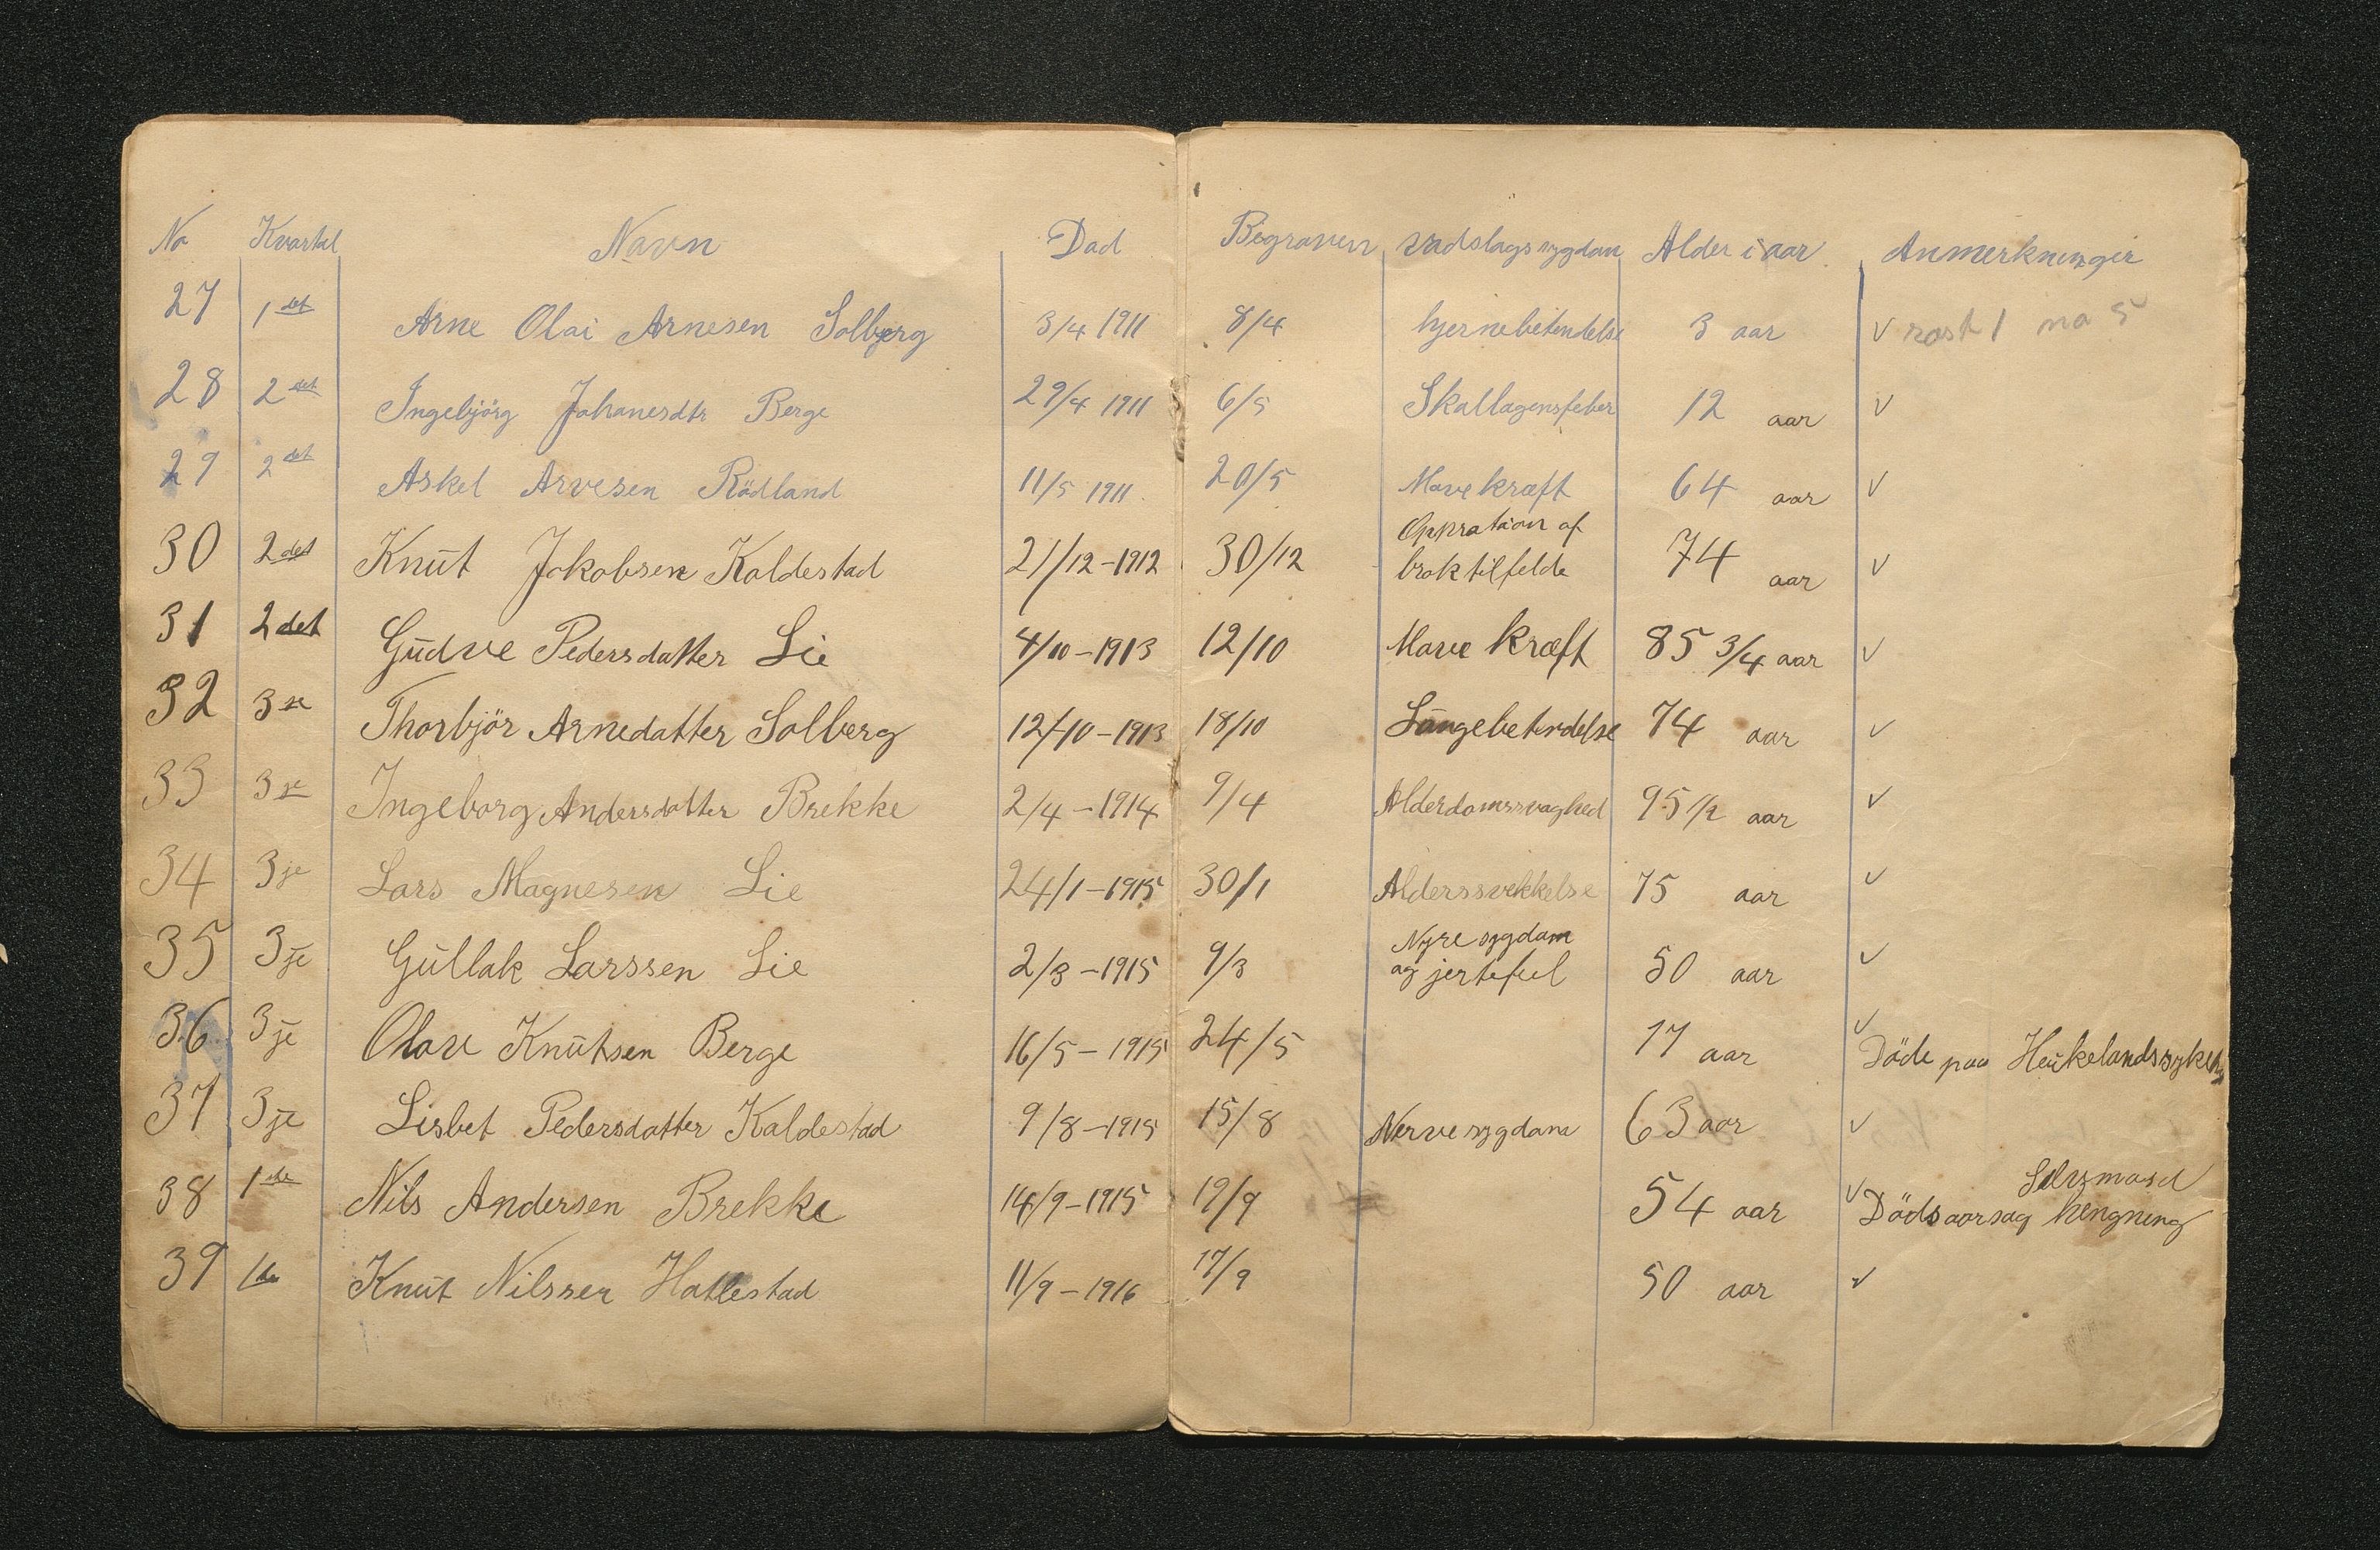 No Kvartal Navn Död Begraven Alder i aar Anmerkninger
27 1det Arne Olai Arnesen Solberg 3/4 1911 8/4 hjernebetendelse 3 aar √ 1 no 5
28 2det Ingebjörg Johanesdtr Berge 29/4 1911 6/5 Skallagensfeber 12 aar √
29 2det Askel Arvesen Rödland 11/5 1911 20/5 Mavekræft 64 aar √
30 2det Knut Jakobsen Kaldestad 21/12-1912 30/12 Oppration af broktilfelde 74 aar √
31 2det Gudve Pedersdatter Lie 4/10-1913 12/10 Mave kræft 85 3/4 aar √
32 3je Thorbjör Arnedatter Solberg 12/10-1913 18/10 Lungebetendelse 74 aar √
33 3je Ingeborg Andersdatter Brekke 2/4-1914 9/4 Alderdomssvaghed 95 1/2 aar √
34 3je Lars Magnesen Lie 24/1-1915 30/1 Alderssvekkelse 75 aar √
35 3je Gullak Larssen Lie 2/3-1915 9/3 Nyresygdom og jertefeel 50 aar √
36 3je Olav Knutsen Berge 16/5-1915 24/5 17 aar √ Döde paa Heukelandssykehs
37 3je Lisbet Pedersdatter Kaldestad 9/8-1915 15/8 Nervesygdom 63 aar √
38 1de Nils Andersen Brekke 14/9-1915 19/9 54 aar √ Selvmord Dödsaarsag hengning
39 1de Knut Nilssen Hatlestad 11/9-1916 17/9 50 aar √